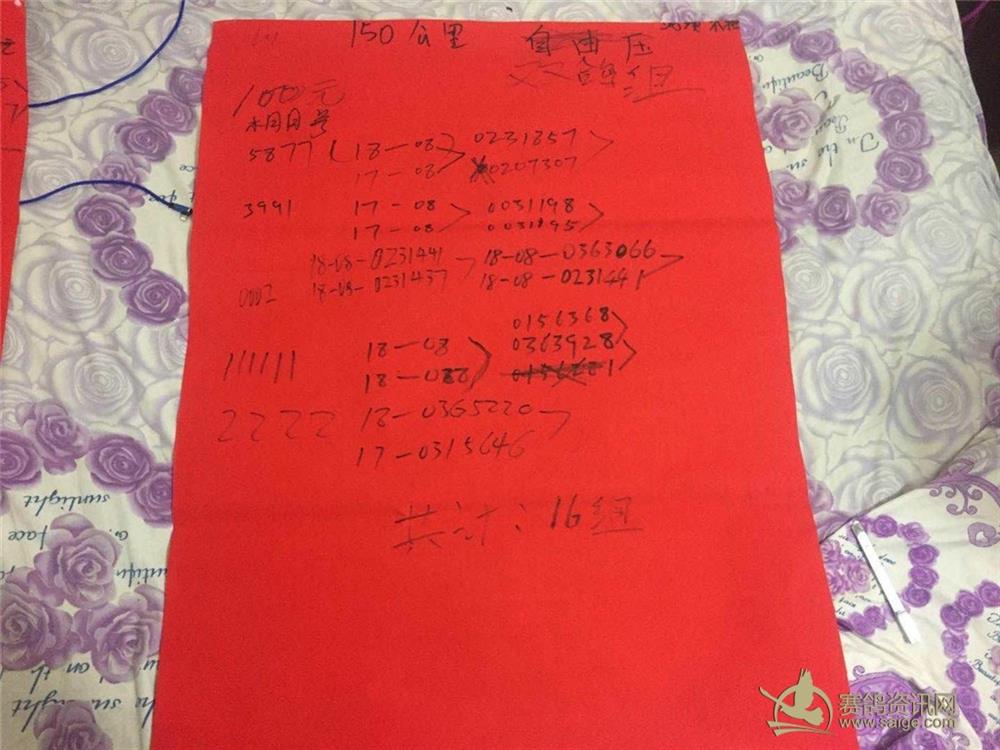 150公里 自由压
双鸽组
100元
棚号
5877 (18-08 0231857
17-08 0207307
3991 17-08 0031198
17-08 0031195
18-08-0231441 18-08-0363066
0002 18-08-0231437 18-08-023144
0156368
111111 18-08 0363928
18-08
2222 18-0365220
17-0315646
共计:16组
赛鸽资讯网
www.saige.com
Beautiful
In the su
sunlight
face
Beautiful